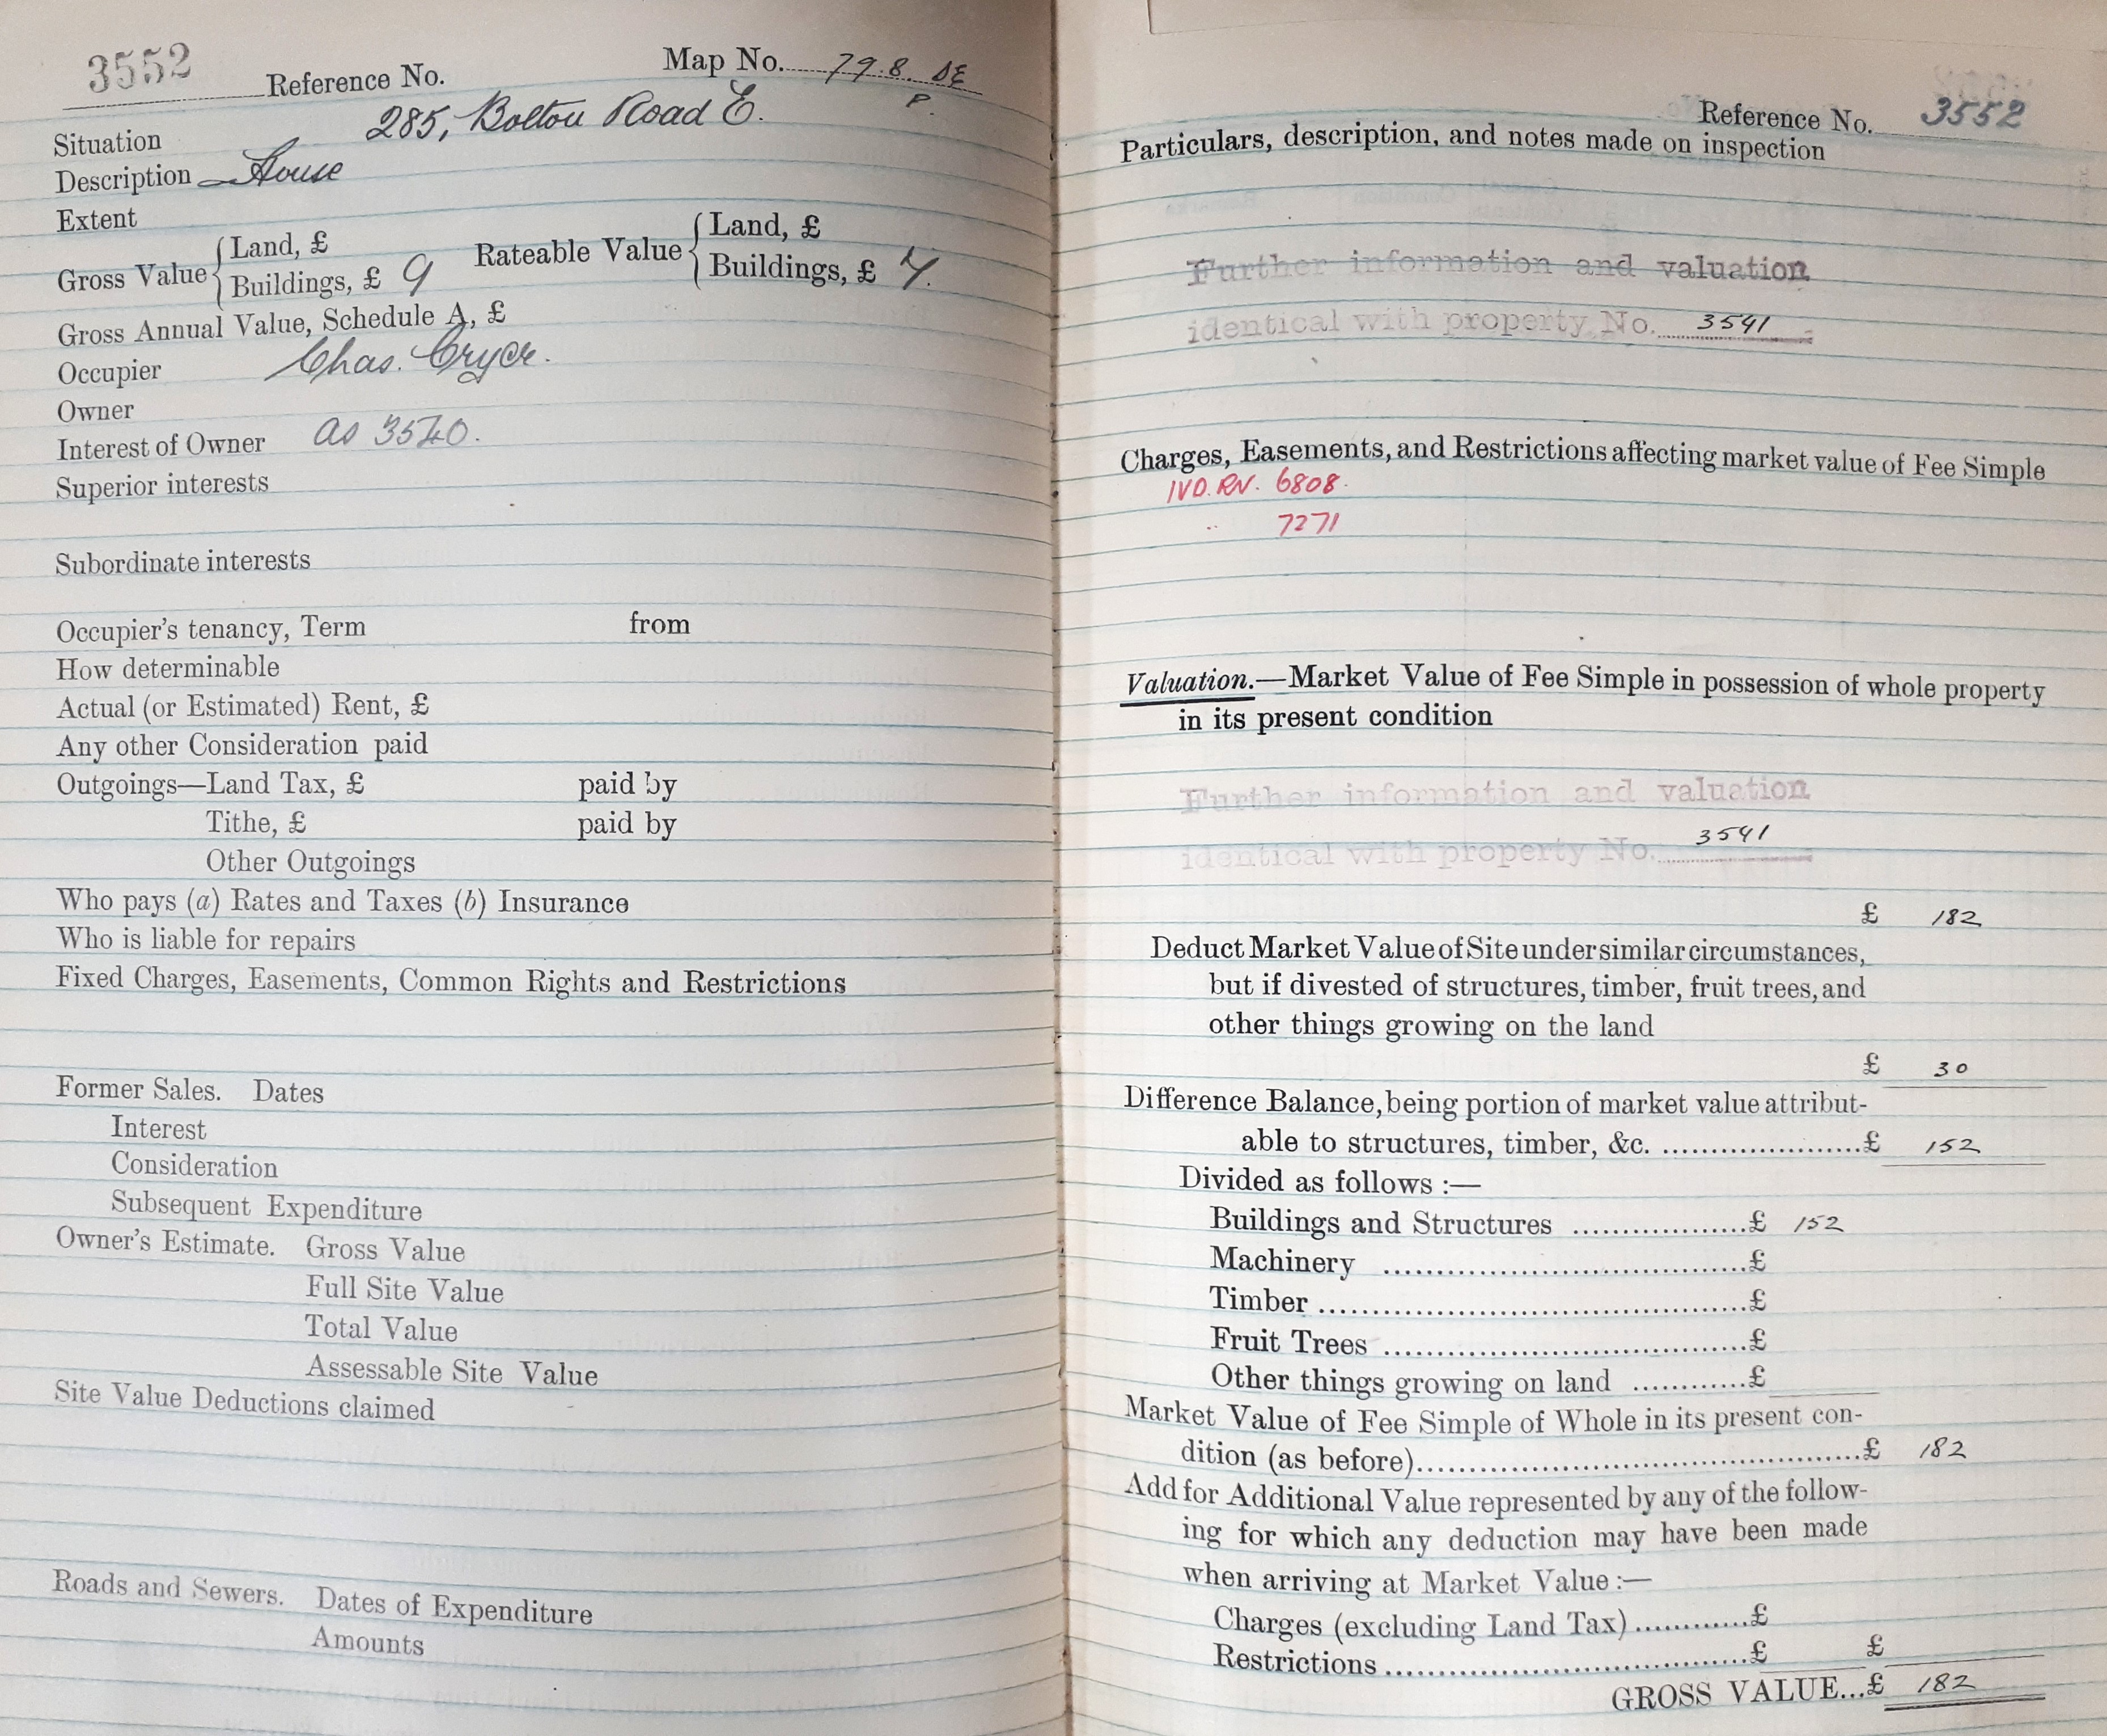 3552 Reference No. Map No. 79.8. SE
P.
Situation 285, Bolton Road E.
Description House
Extent
Gross Value { Land, £
Buildings, £ 9
Rateable Value { Land, £
Buildings, £ 7.
Gross Annual Value, Schedule A, £
Occupier Chas. Cryer.
Owner
Interest of Owner as 3540.
Superior interests
Subordinate interests
Occupier's tenancy, Term from
How determinable
Actual (or Estimated) Rent, £
Any other Consideration paid
Outgoings—Land Tax, £ paid by
Tithe, £ paid by
Other Outgoings
Who pays (a) Rates and Taxes (b) Insurance
Who is liable for repairs
Fixed Charges, Easements, Common Rights and Restrictions
Former Sales. Dates
Interest
Consideration
Subsequent Expenditure
Owner's Estimate. Gross Value
Full Site Value
Total Value
Assessable Site Value
Site Value Deductions claimed
Roads and Sewers. Dates of Expenditure
Amounts
Reference No. 3552
Particulars, description, and notes made on inspection
Further information and valuation
identical with property No. 3541
Charges, Easements, and Restrictions affecting market value of Fee Simple
IVD. RN. 6808.
.. 7271
Valuation.—Market Value of Fee Simple in possession of whole property
in its present condition
Further information and valuation
identical with property No. 3541
£ 182
Deduct Market Value of Site under similar circumstances,
but if divested of structures, timber, fruit trees, and
other things growing on the land
£ 30
Difference Balance, being portion of market value attribut-
able to structures, timber, &c. ......................£ 152
Divided as follows :—
Buildings and Structures ...................£ 152
Machinery ........................................£
Timber ...............................................£
Fruit Trees ........................................£
Other things growing on land ............£
Market Value of Fee Simple of Whole in its present con-
dition (as before)................................................£ 182
Add for Additional Value represented by any of the follow-
ing for which any deduction may have been made
when arriving at Market Value :—
Charges (excluding Land Tax)............£
Restrictions ........................................£ £
GROSS VALUE...£ 182